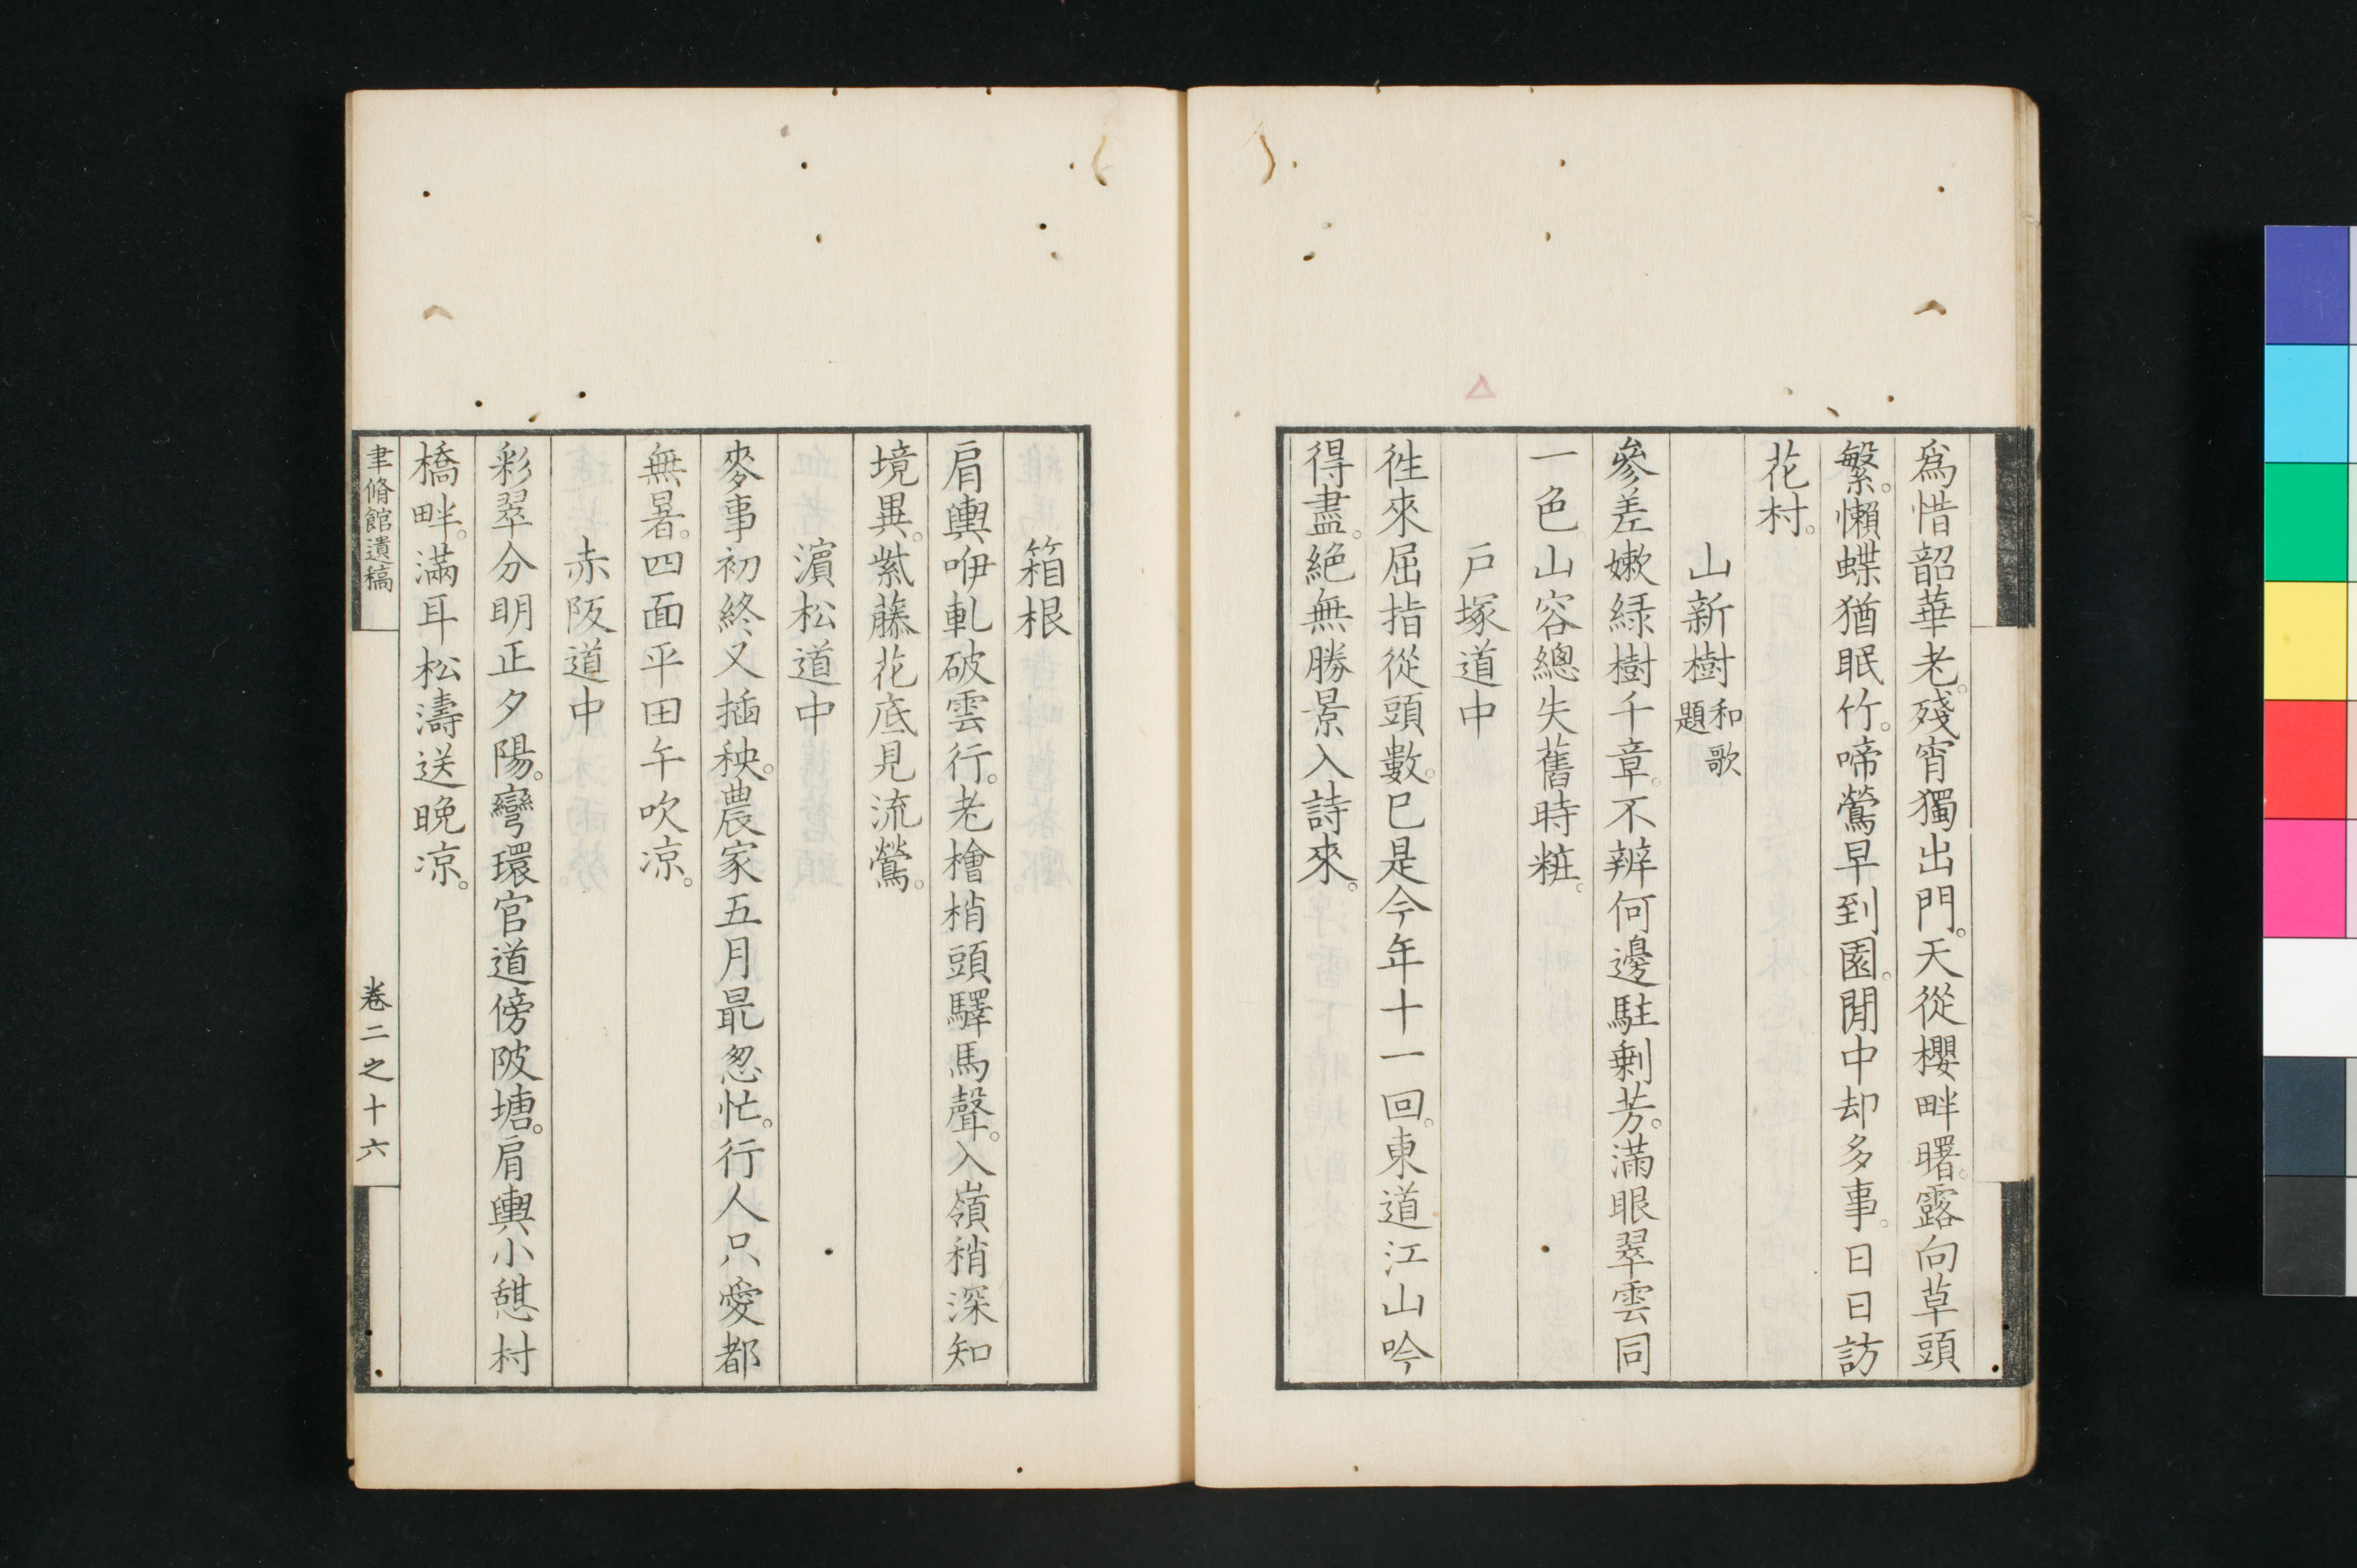 爲惜韶華老。殘宵獨出門。天從櫻畔曙。露向草頭
繁。懶蝶猶眠竹。啼鶯早到園。閒中却多事。日日訪
花村。
山新樹和歌題
參差嫰緑樹千章。不辨何邊駐剰芳。滿眼翠雲同
一色。山容總失舊時粧。
戸塚道中
徃來屈指從頭數。已是今年十一回。東道江山吟
得盡。絶無勝景入詩來。
箱根
肩輿咿軋破雲行。老檜梢頭驛馬聲。入嶺稍深知
境異。紫藤花底見流鶯。
濵松道中
麥事初終又插秧。農家五月最怱忙。行人只愛都
無暑。四面平田午吹凉。
赤阪道中
彩翠分明正夕陽。彎環官道傍陂塘。肩輿小憇村
橋畔。滿耳松濤送晩凉。
聿脩館遺稿
卷二之十六